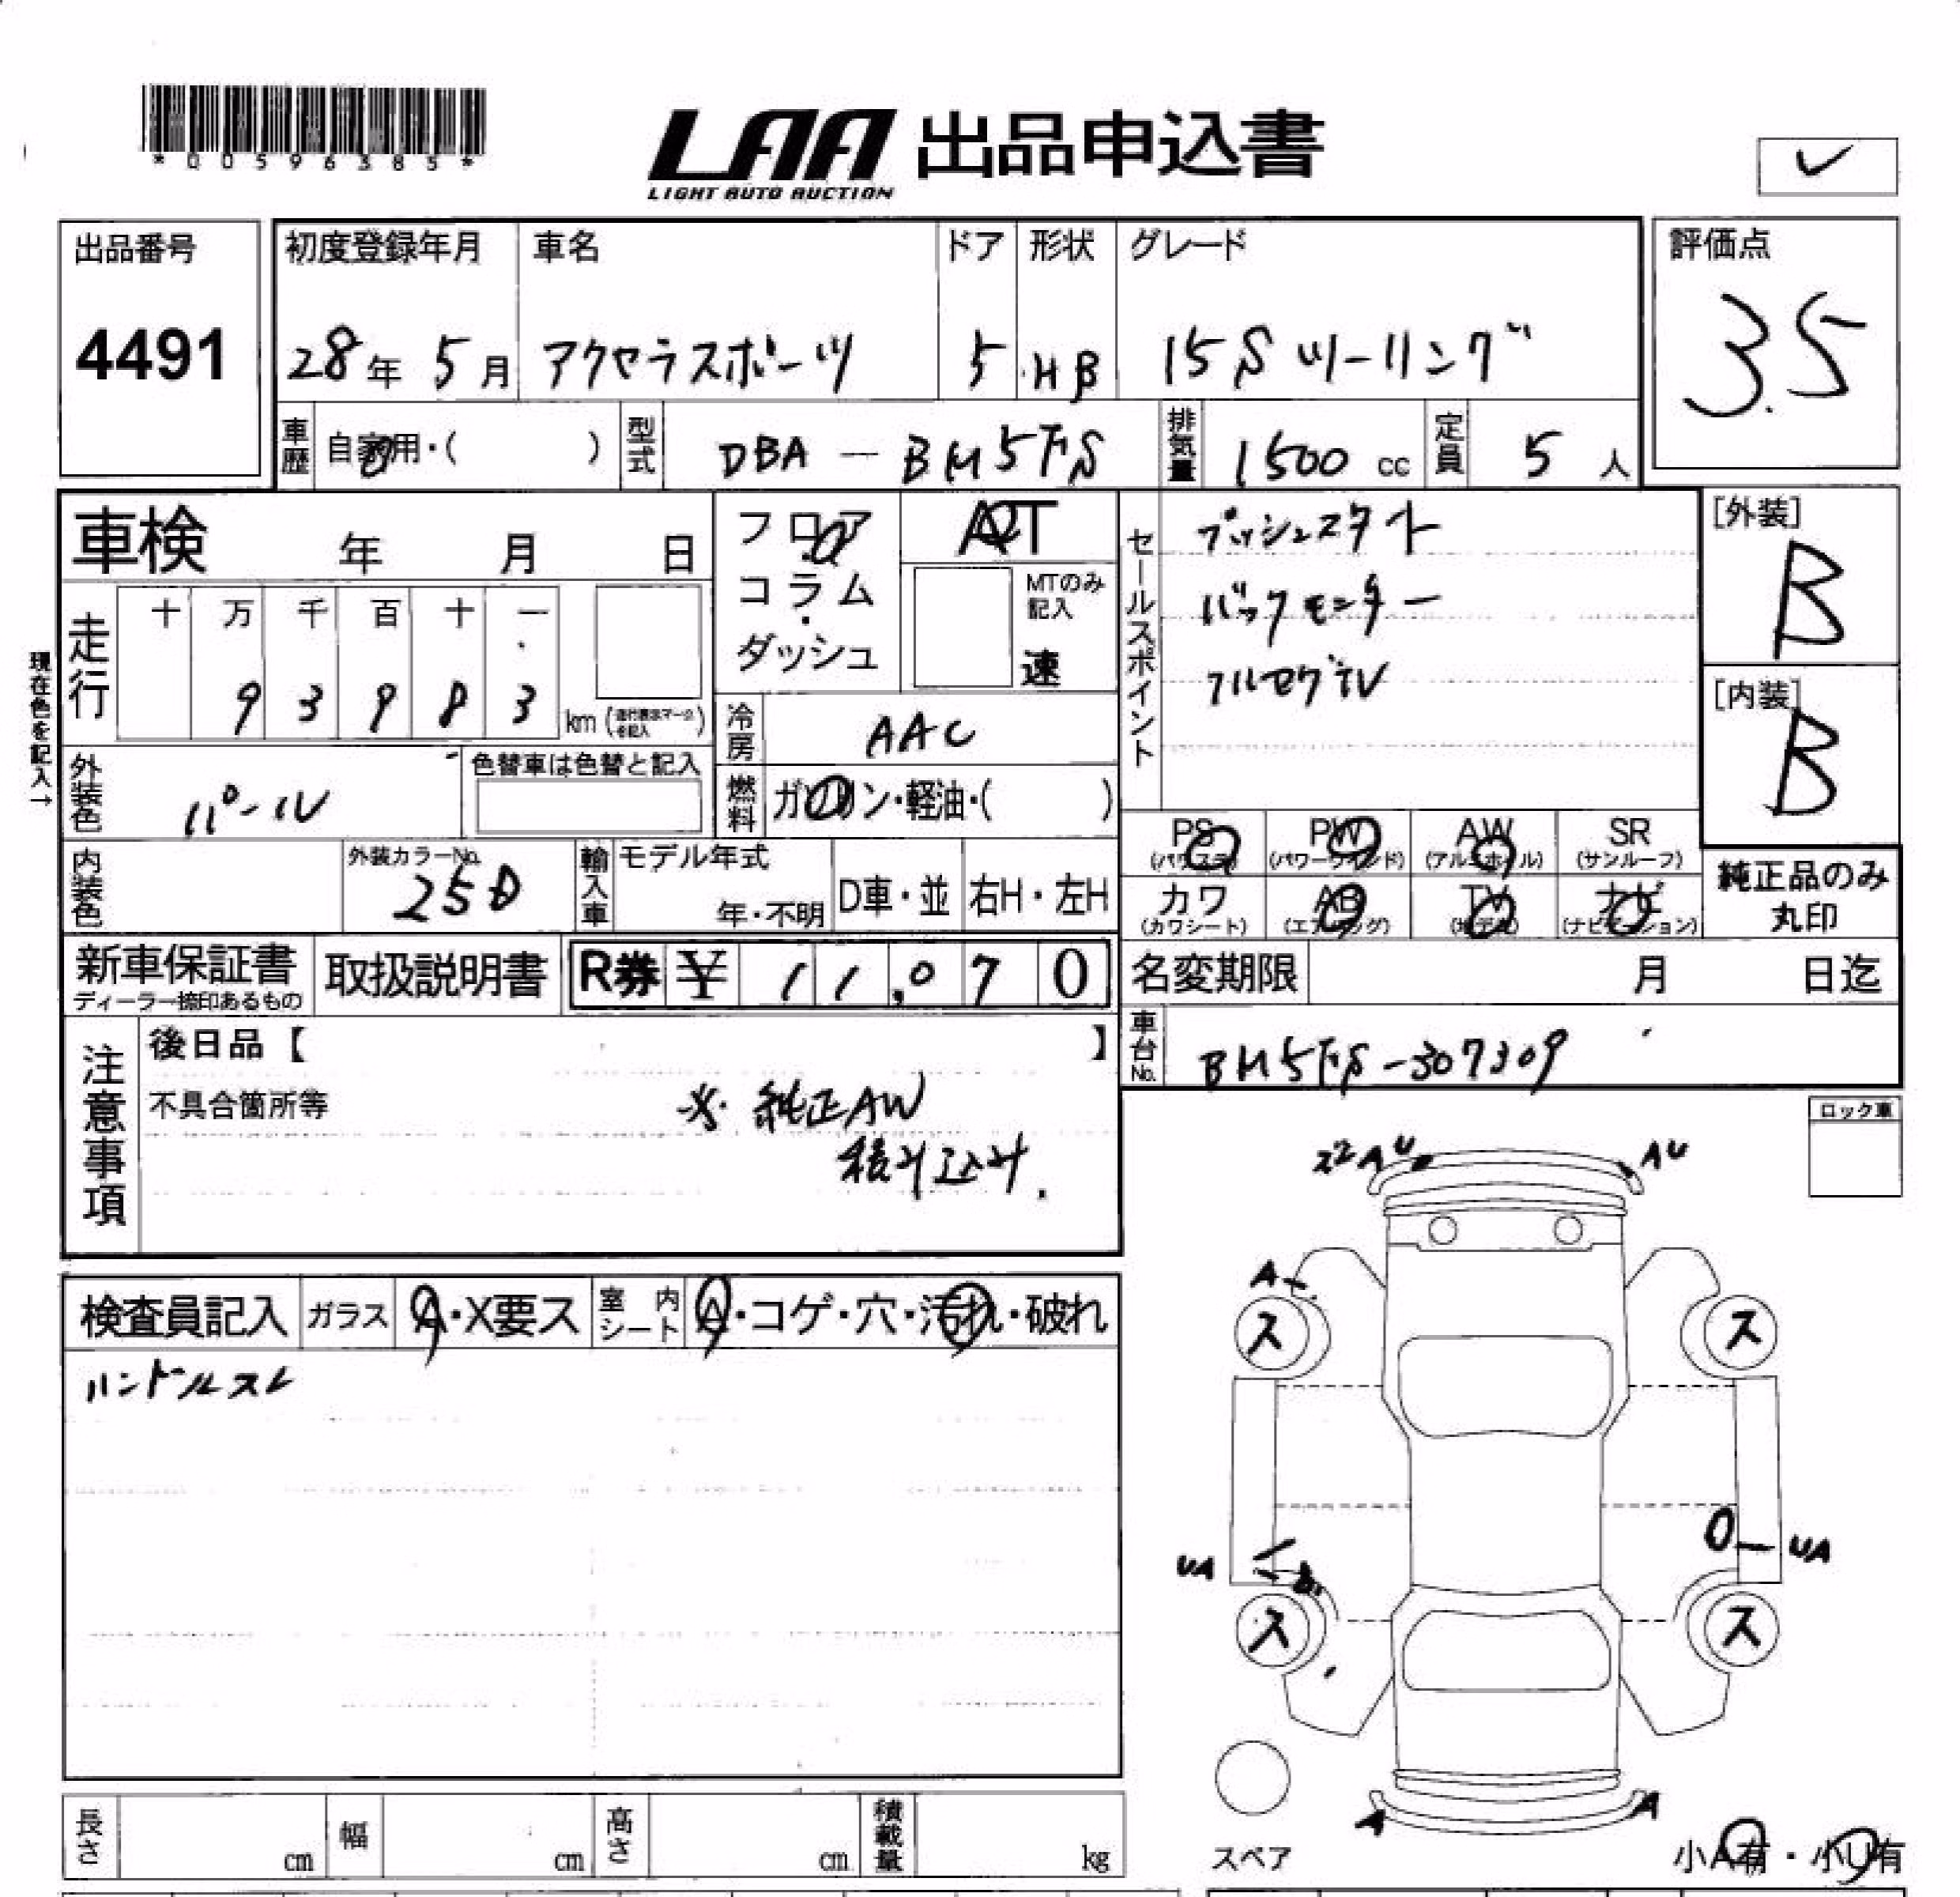 *00596385*
LAA 出品申込書
LIGHT AUTO AUCTION
出品番号
4491
初度登録年月
28年 5月
車名
アクセラスポーツ
ドア
5
形状
HB
グレード
15Sツーリング
評価点
3.5
車歴
自家用・( )
型式
DBA - BM5FS
排気量
1500 cc
定員
5 人
車検 年 月 日
フロア
・
コラム
・
ダッシュ
AT
MTのみ
記入
速
セールスポイント
プッシュスタート
バックモニター
フルセグTV
[外装]
B
[内装]
B
現在色を記入→
走行
十 万 千 百 十 一
9 3 9 8 3
km
冷房
AAC
外装色
パール
色替車は色替と記入
燃料
ガソリン・軽油・( )
PS
(パワステ)
PW
(パワーウインド)
AW
(アルミホイル)
SR
(サンルーフ)
カワ
(カワシート)
AB
(エアバッグ)
TV
ナビ
(ナビゲーション)
純正品のみ
丸印
内装色
外装カラーNo.
25D
輸入車
モデル年式
年・不明
D車・並
右H・左H
新車保証書
ディーラー捺印あるもの
取扱説明書
R券 ¥ 11,070
名変期限 月 日迄
車台No.
BM5FS-307309
注意事項
後日品【 】
不具合箇所等
※純正AW
積み込み.
ロック車
22AU
AU
A
ス
ス
UA
UA
ス
ス
A
A
検査員記入
ガラス
A・X要ス
室内シート
A・コゲ・穴・汚れ・破れ
ハンドルスレ
長さ
cm
幅
cm
高さ
cm
積載量
kg
スペア
小A有・小U有